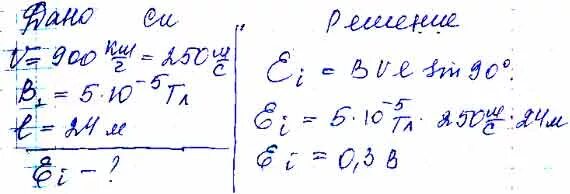 Дано си
V = 900 км/г = 250 м/с
B₁ = 5·10⁻⁵ Тл
ℓ = 24 м
Ɛi - ?
Решение
Ɛi = BVℓ sin 90°.
Ɛi = 5·10⁻⁵ Тл · 250 м/с · 24 м
Ɛi = 0,3 В